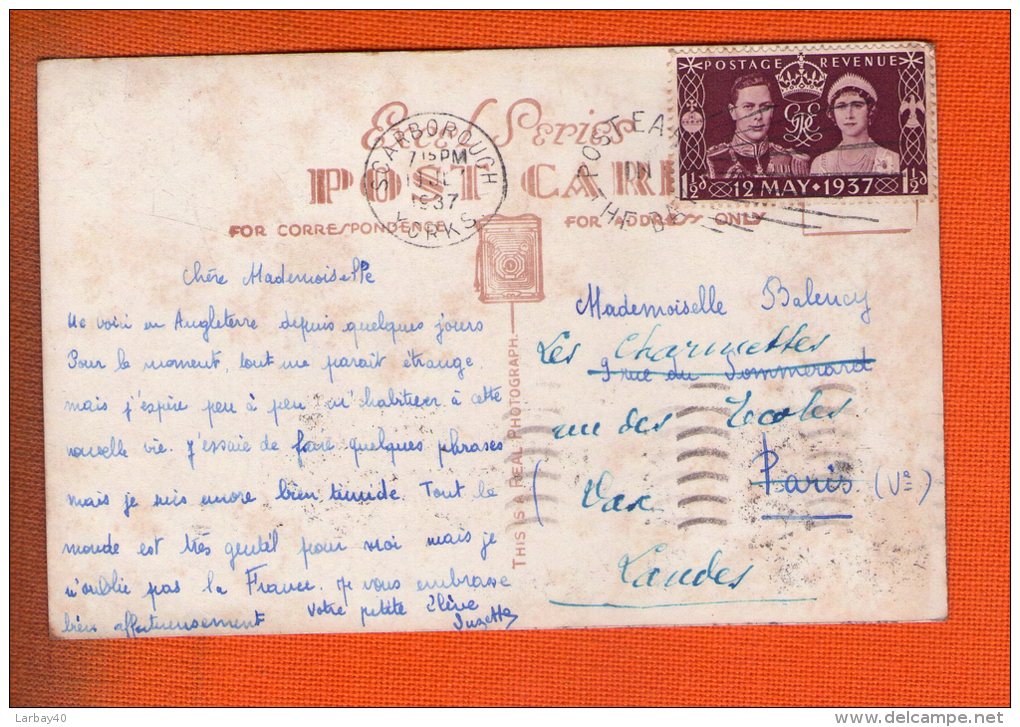 POSTAGE REVENUE
1½d 12 MAY • 1937 1½d
SCARBOROUGH
7 15 PM
1937
YORKS
POST EA
IN
THE DA
Excel Series
POST CARD
FOR CORRESPONDENCE
FOR ADDRESS ONLY
THIS IS A REAL PHOTOGRAPH
Chère Mademoiselle
Me voici en Angleterre depuis quelques jours
Pour le moment, tout me paraît étrange
mais j'espère peu à peu m'habituer à cette
nouvelle vie. J'essaie de faire quelques phrases
mais je suis encore bien timide. Tout le
monde est très gentil pour moi mais je
n'oublie pas la France. Je vous embrasse
bien affectueusement
Votre petite élève
Suzette
Mademoiselle Balency
Les Charmettes
9 rue du Sommerard
rue des Ecoles
Paris (Ve)
Dax
Landes
Larbay40
delcampe.net